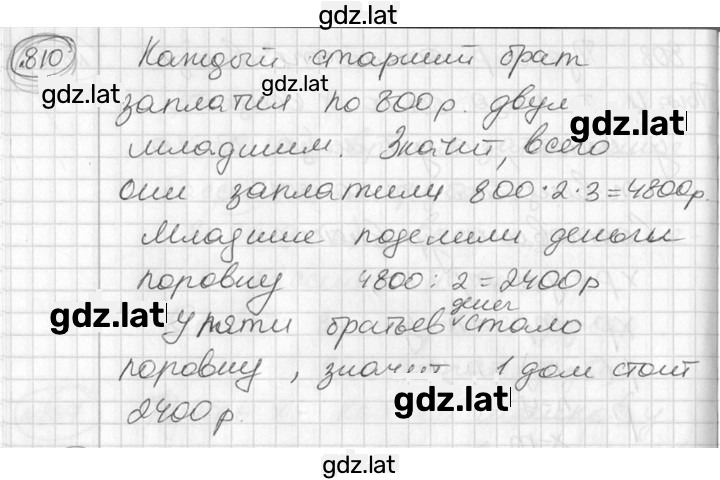 gdz.lat
810 Каждый старший брат
gdz.lat gdz.lat
заплатил по 800 р. двум
gdz.lat
младшим. Значит, всего
они заплатили 800·2·3=4800р.
Младшие поделили деньги
поровну 4800:2=2400р
gdz.lat денег
У пяти братьев стало
поровну, значит 1 дом стоит
gdz.lat
2400р.
gdz.lat